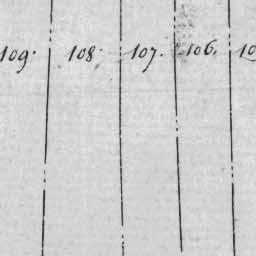 109. 108. 107. 106.